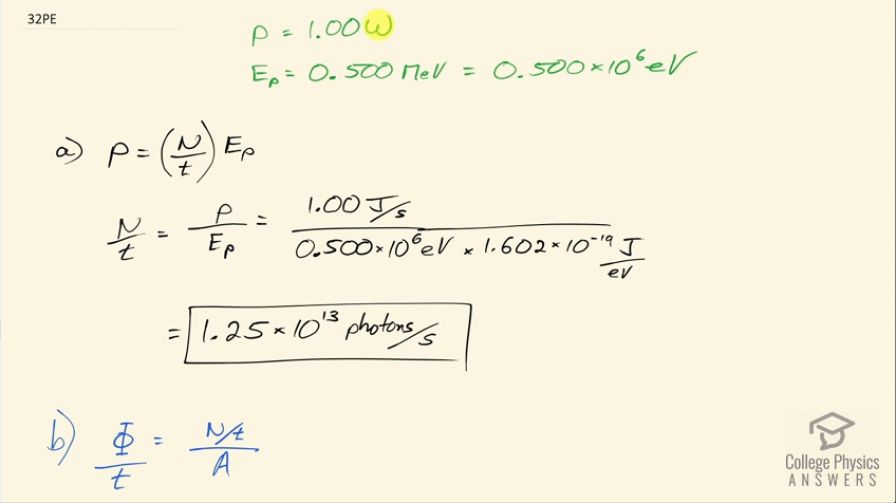 32PE
P = 1.00 W
E_p = 0.500 MeV = 0.500 × 10^6 eV
a) P = (N/t) E_p
N/t = P/E_p = 1.00 J/s / 0.500 × 10^6 eV × 1.602 × 10^-19 J/eV
= 1.25 × 10^13 photons/s
b) Φ/t = N/t / A
College Physics
ANSWERS